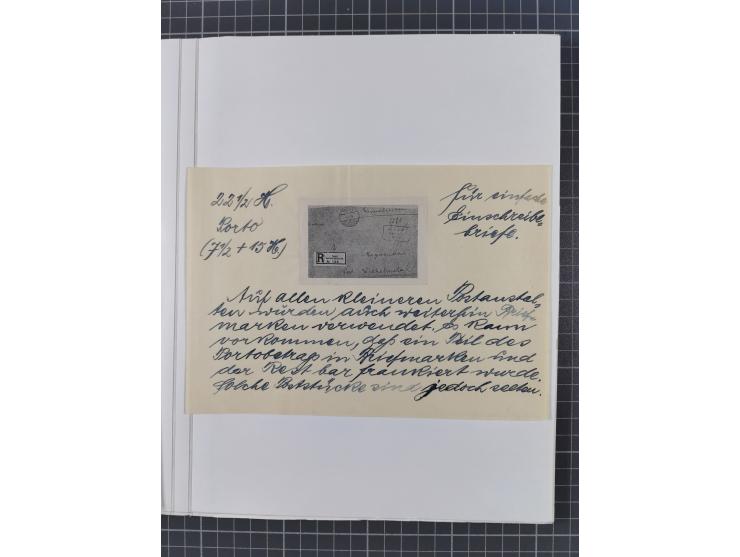 22 1/2 H.
Porto
(7 1/2 + 15 H)
für einfache
Einschreibe-
briefe.
R
Auf allen kleineren Postanstal-
ten wurden auch weiterhin Brief-
marken verwendet, es kann
vorkommen, daß ein Teil des
Portobetrag in Briefmarken und
der Rest bar frankiert wurde.
Solche Poststücke sind jedoch selten.